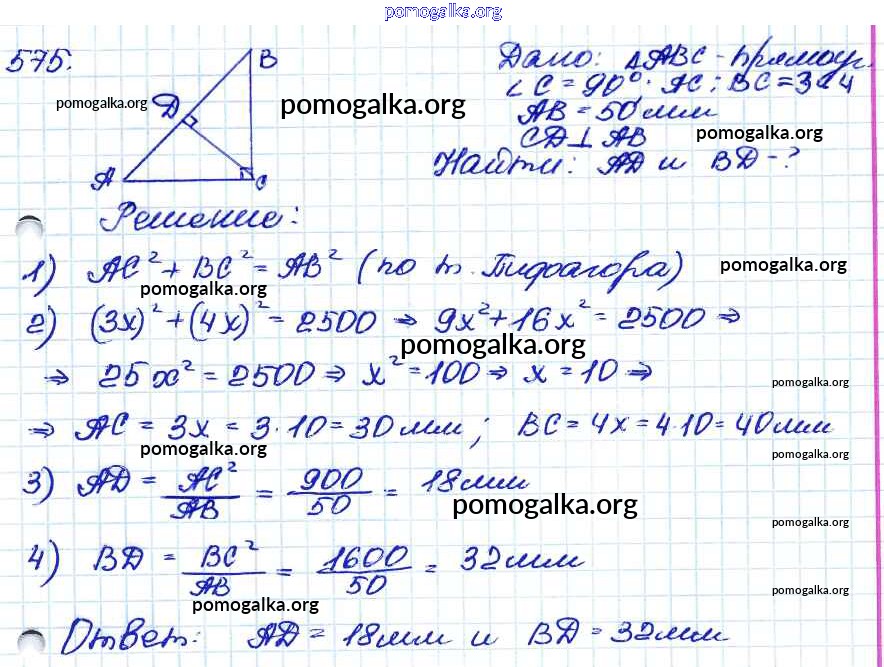 pomogalka.org
575.
B
Дано: ΔABC - прямоуг.
pomogalka.org
D
pomogalka.org
∠C = 90°; AC : BC = 3:4
AB = 50 мм
CD ⊥ AB
pomogalka.org
A
C
Найти: AD и BD - ?
Решение:
1) AC² + BC² = AB² (по т. Пифагора)
pomogalka.org
pomogalka.org
2) (3x)² + (4x)² = 2500 ⇒ 9x² + 16x² = 2500 ⇒
pomogalka.org
⇒ 25x² = 2500 ⇒ x² = 100 ⇒ x = 10 ⇒
pomogalka.org
⇒ AC = 3x = 3·10 = 30 мм; BC = 4x = 4·10 = 40 мм
pomogalka.org
pomogalka.org
3) AD = AC²/AB = 900/50 = 18 мм
pomogalka.org
pomogalka.org
4) BD = BC²/AB = 1600/50 = 32 мм
pomogalka.org
pomogalka.org
Ответ: AD = 18 мм и BD = 32 мм